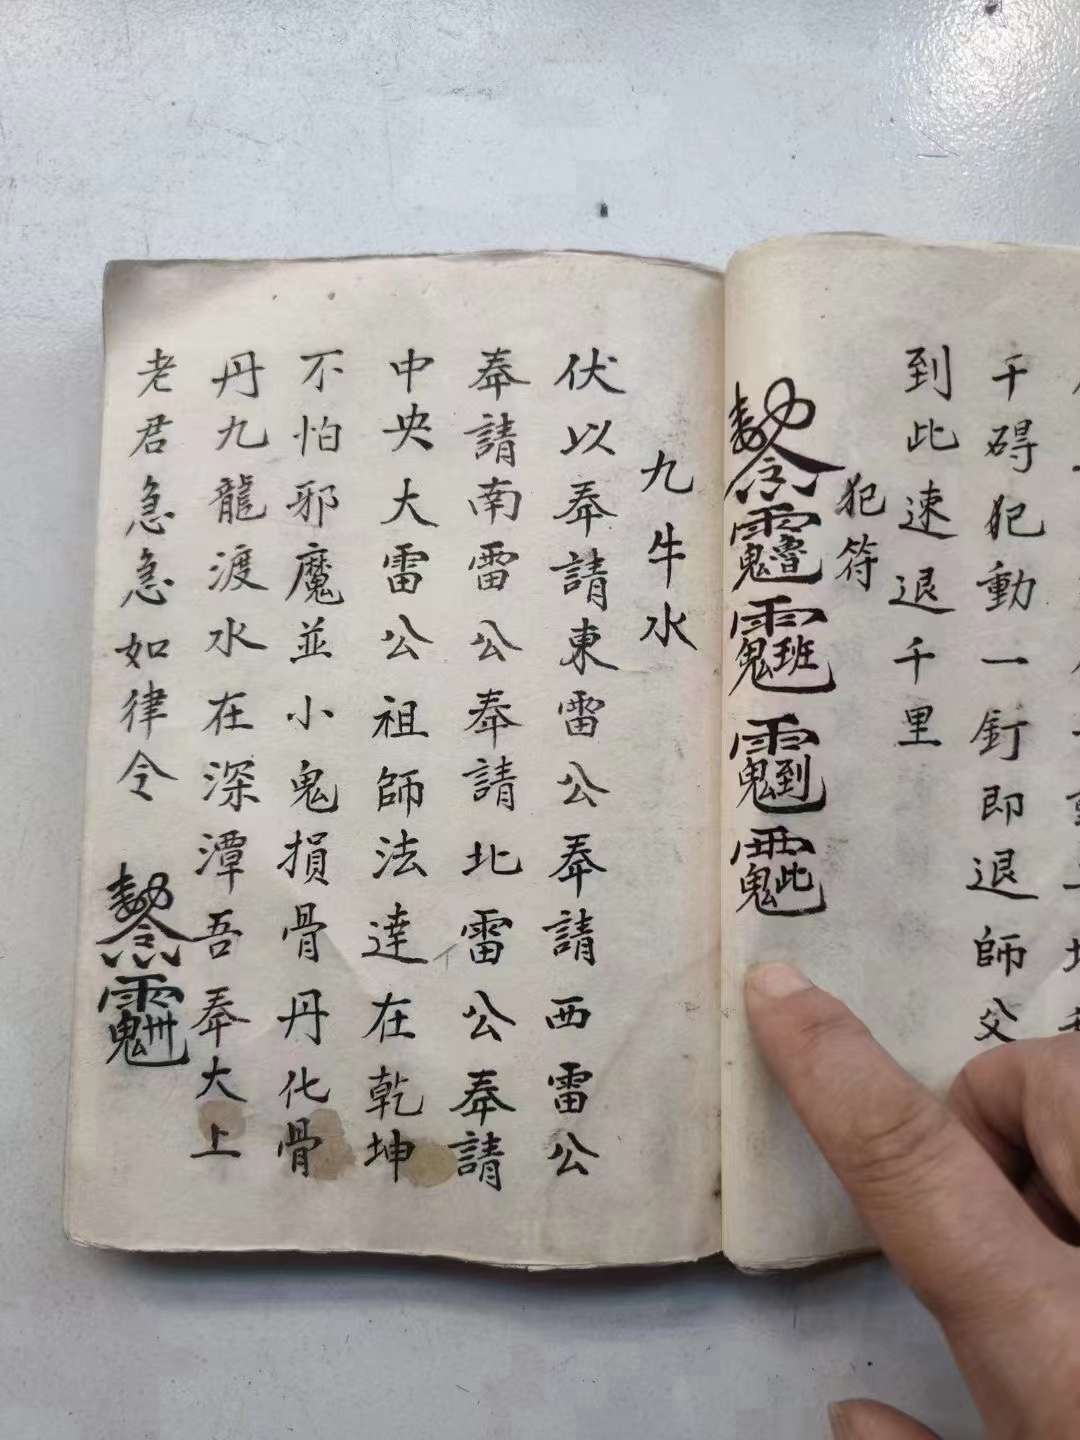 千碍犯動一釘即退師父
到此速退千里
犯符
九牛水
伏以奉請東雷公奉請西雷公
奉請南雷公奉請北雷公奉請
中央大雷公祖師法達在乾坤
不怕邪魔並小鬼損骨丹化骨
丹九龍渡水在深潭吾奉大上
老君急急如律令